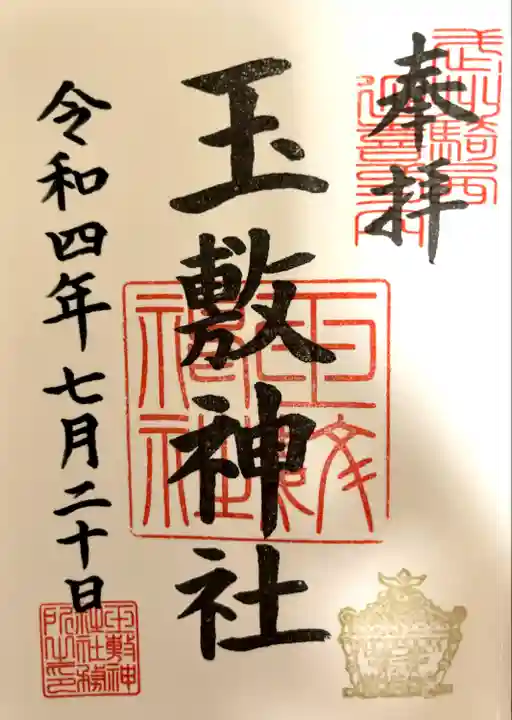 奉拝
玉敷神社
令和四年七月二十日
玉敷神社
玉敷神社社務所之印